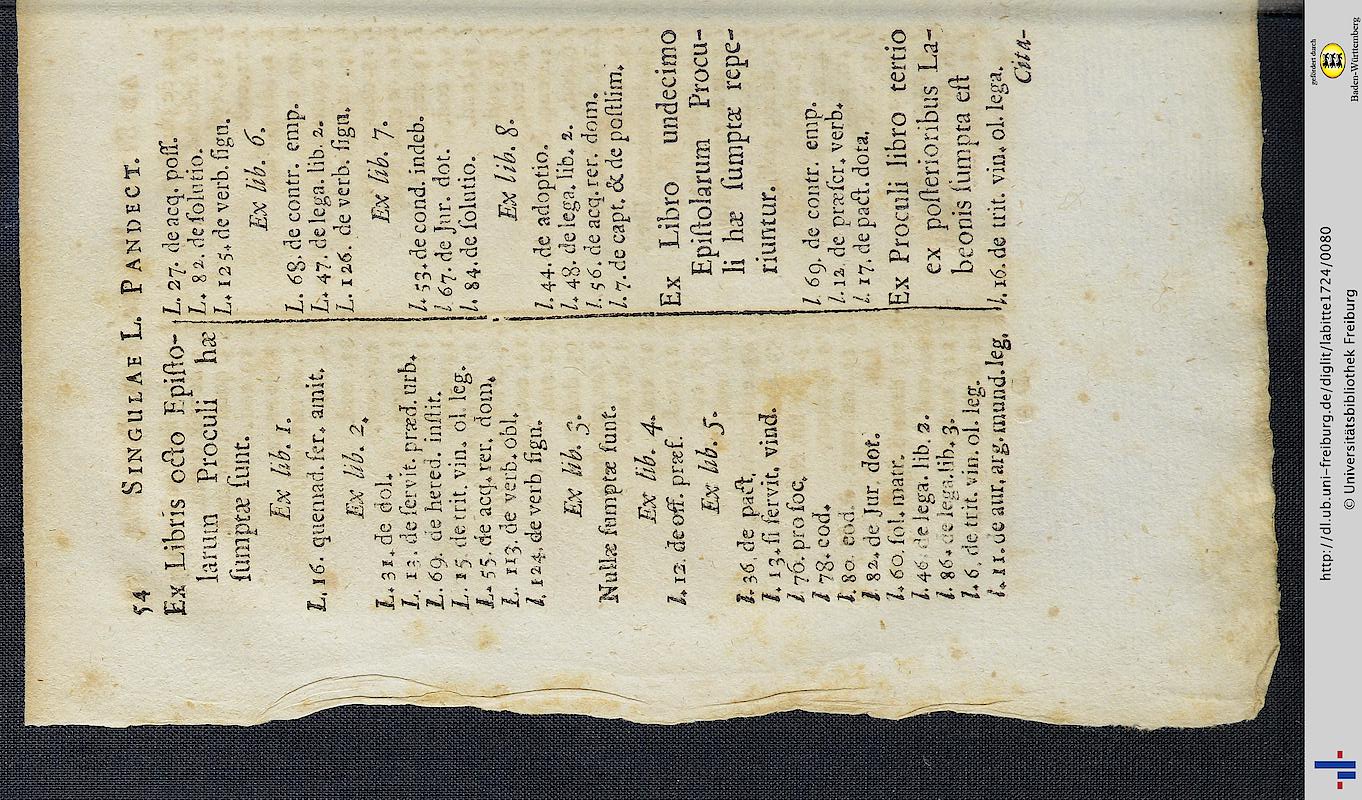 54 SINGULAE L. PANDECT.
Ex Libris octo Episto-
larum Proculi hæ
sumptæ sunt.
Ex lib. 1.
L. 16. quemad. ser. amit.
Ex lib. 2.
L. 31. de dol.
L. 13. de servit. præd. urb.
L. 69. de hered. instit.
L. 15. de trit. vin. ol. leg.
L. 55. de acq. rer. dom.
L. 113. de verb. obl.
l. 124. de verb sign.
Ex lib. 3.
Nullæ sumptæ sunt.
Ex lib. 4.
l. 12. de off. præf.
Ex lib. 5.
l. 36. de pact.
l. 13. si servit. vind.
l 76. pro soc.
l 78. eod.
l. 80. eod.
l 82. de Jur. dot.
l. 60. sol. matr.
l. 46 de lega. lib. 2.
l. 86. de lega. lib. 3.
l. 6. de trit. vin. ol. leg.
l. 11. de aur. arg. mund. leg.
L. 27. de acq. poss.
L. 82. de solutio.
L. 125. de verb. sign.
Ex lib. 6.
L. 68. de contr. emp.
L. 47. de lega. lib. 2.
L. 126. de verb. sign.
Ex lib. 7.
l. 53. de cond. indeb.
l 67. de Jur. dot.
l. 84. de solutio.
Ex lib. 8.
l. 44. de adoptio.
l. 48. de lega. lib. 2.
l. 56. de acq. rer. dom.
l. 7. de capt. & de postlim.
Ex Libro undecimo
Epistolarum Procu-
li hæ sumptæ repe-
riuntur.
l 69. de contr. emp.
l. 12. de præscr. verb.
l 17. de pact. dota.
Ex Proculi libro tertio
ex posterioribus La-
beonis sumpta est
l. 16. de trit. vin. ol. lega.
Cita-
http://dl.ub.uni-freiburg.de/diglit/labitte1724/0080
© Universitätsbibliothek Freiburg
gefördert durch
Baden-Württemberg